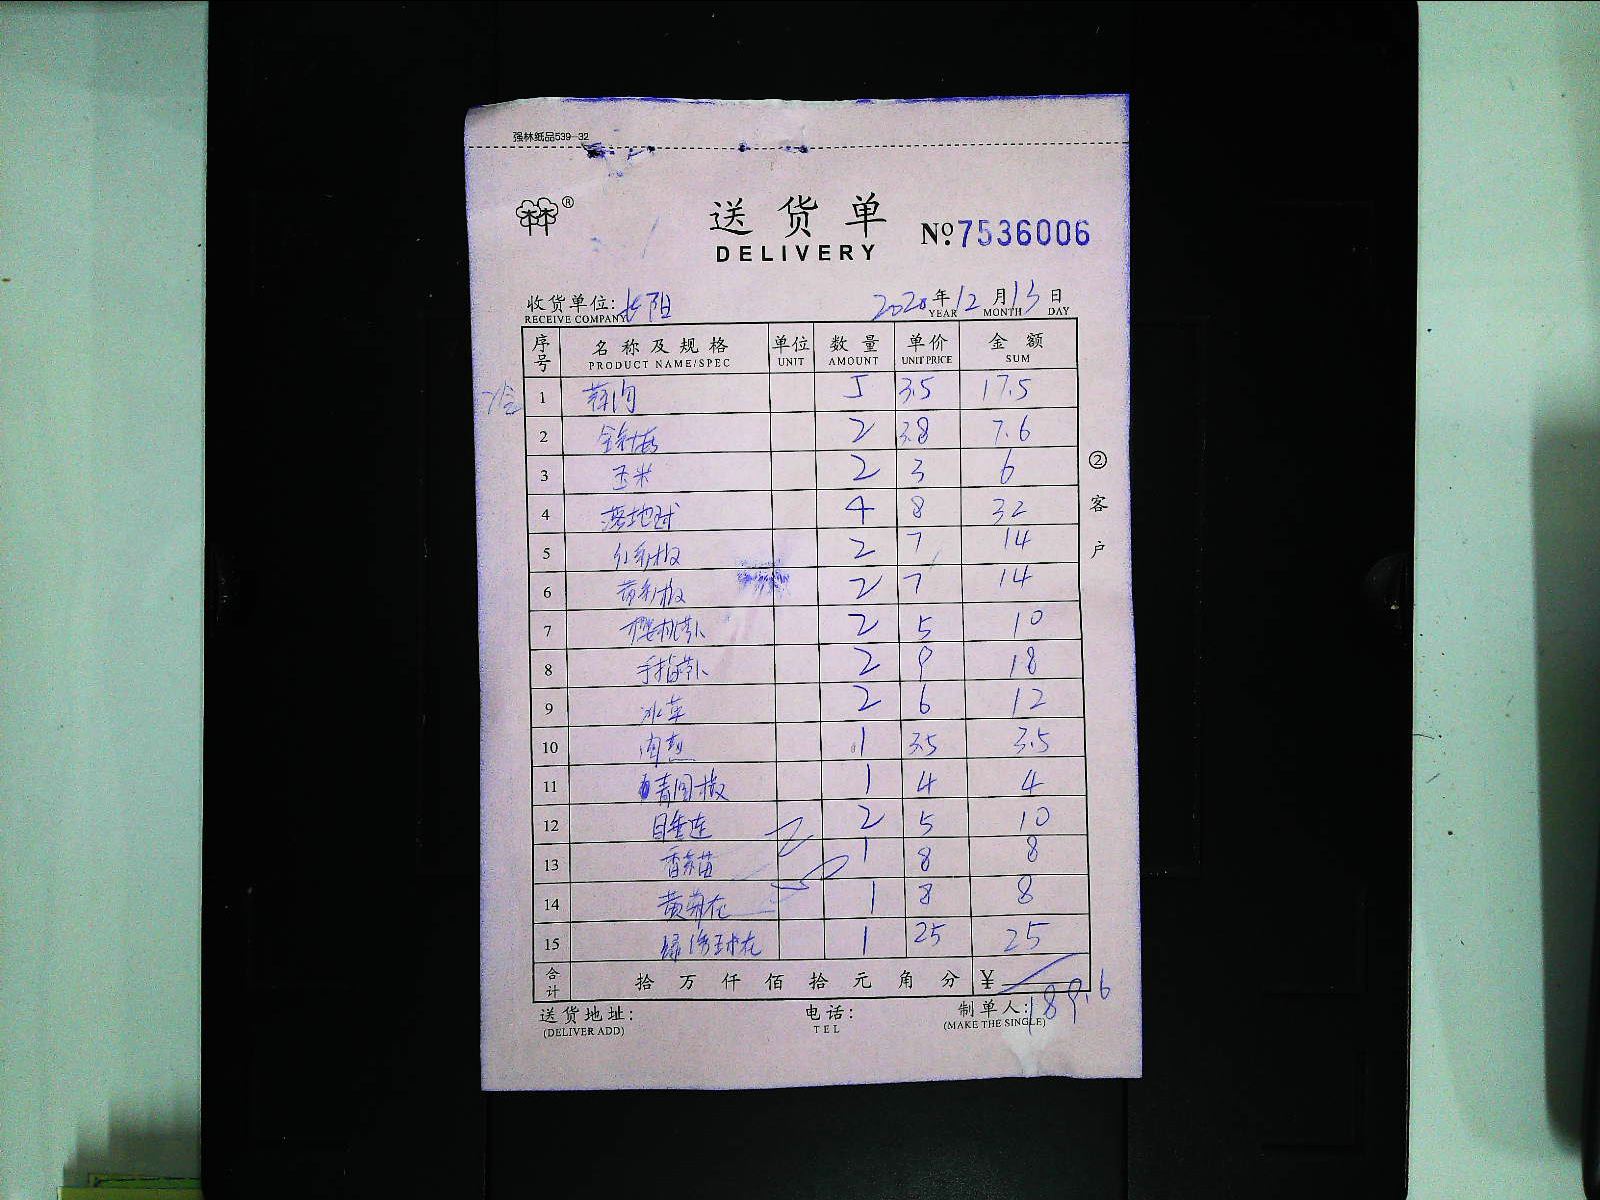 强林纸品539-32
®
送货单
DELIVERY
№ 7536006
收货单位: 长阳
RECEIVE COMPANY
2020年12月13日
YEAR MONTH DAY
序号 名称及规格 单位 数量 单价 金额
PRODUCT NAME/SPEC UNIT AMOUNT UNIT PRICE SUM
1 5 3.5 17.5
2 金针菇 2 3.8 7.6
3 玉米 2 3 6
4 落地球 4 8 32
5 红彩椒 2 7 14
6 黄彩椒 2 7 14
7 樱桃卜 2 5 10
8 手指卜 2 9 18
9 冰草 2 6 12
10 1 3.5 3.5
11 青圆椒 1 4 4
12 2 5 10
13 香菜苗 1 8 8
14 黄菊花 1 8 8
15 绿绣球花 1 25 25
合计 拾 万 仟 佰 拾 元 角 分 ¥ 189.6
送货地址: 电话: 制单人:
(DELIVER ADD) TEL (MAKE THE SINGLE)
② 客户